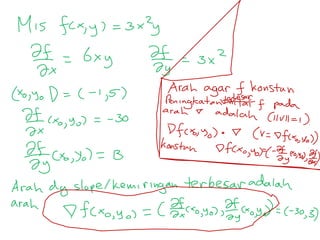 Mis f(x,y) = 3x²y
∂f/∂x = 6xy ∂f/∂y = 3x²
(x₀,y₀) = (-1,5)
∂f/∂x (x₀,y₀) = -30
∂f/∂y (x₀,y₀) = 3
Arah agar f konstan
Peningkatan terbesar f pada
arah v adalah (||v||=1)
∇f(x₀,y₀) • v (v = ∇f(x₀,y₀))
konstan ∇f(x₀,y₀) = (-∂f/∂y (x₀,y₀), ∂f/∂x
Arah dg slope/kemiringan terbesar adalah
arah ∇f(x₀,y₀) = (∂f/∂x (x₀,y₀), ∂f/∂y (x₀,y₀)) = (-30,3)